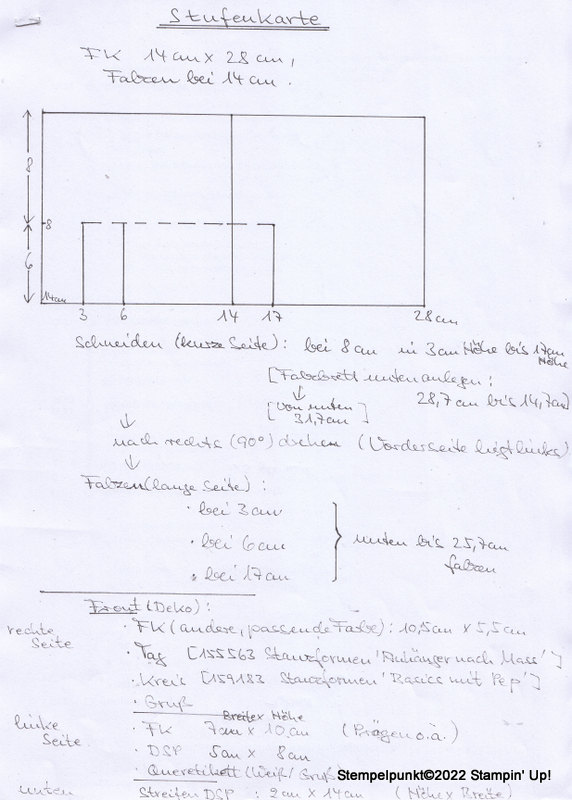 Stufenkarte
FK 14cm x 28cm,
Falzen bei 14cm.
8
8
6
14cm
3 6 14 17 28cm
Schneiden (kurze Seite): bei 8cm in 3cm Höhe bis 17cm Höhe
[Falzbrett unten anlegen:
28,7cm bis 14,7cm]
[von unten
31,7cm]
nach rechts (90°) drehen (Vorderseite liegt links)
Falzen (lange Seite):
· bei 3cm
· bei 6cm
· bei 17cm
unten bis 25,7cm
falzen
Front (Deko):
rechte Seite
· FK (andere, passende Farbe): 10,5cm x 5,5cm
· Tag [155563 Stanzformen 'Anhänger nach Mass']
· Kreis [159183 Stanzformen 'Basics mit Pep']
· Gruß
linke Seite
Breite x Höhe
· FK 7cm x 10cm (Prägen o.ä.)
· DSP 5cm x 8cm
· Queretikett (Weiß/Gruß)
Stempelpunkt©2022 Stampin' Up!
unten
Streifen DSP : 2cm x 14cm (Höhe x Breite)